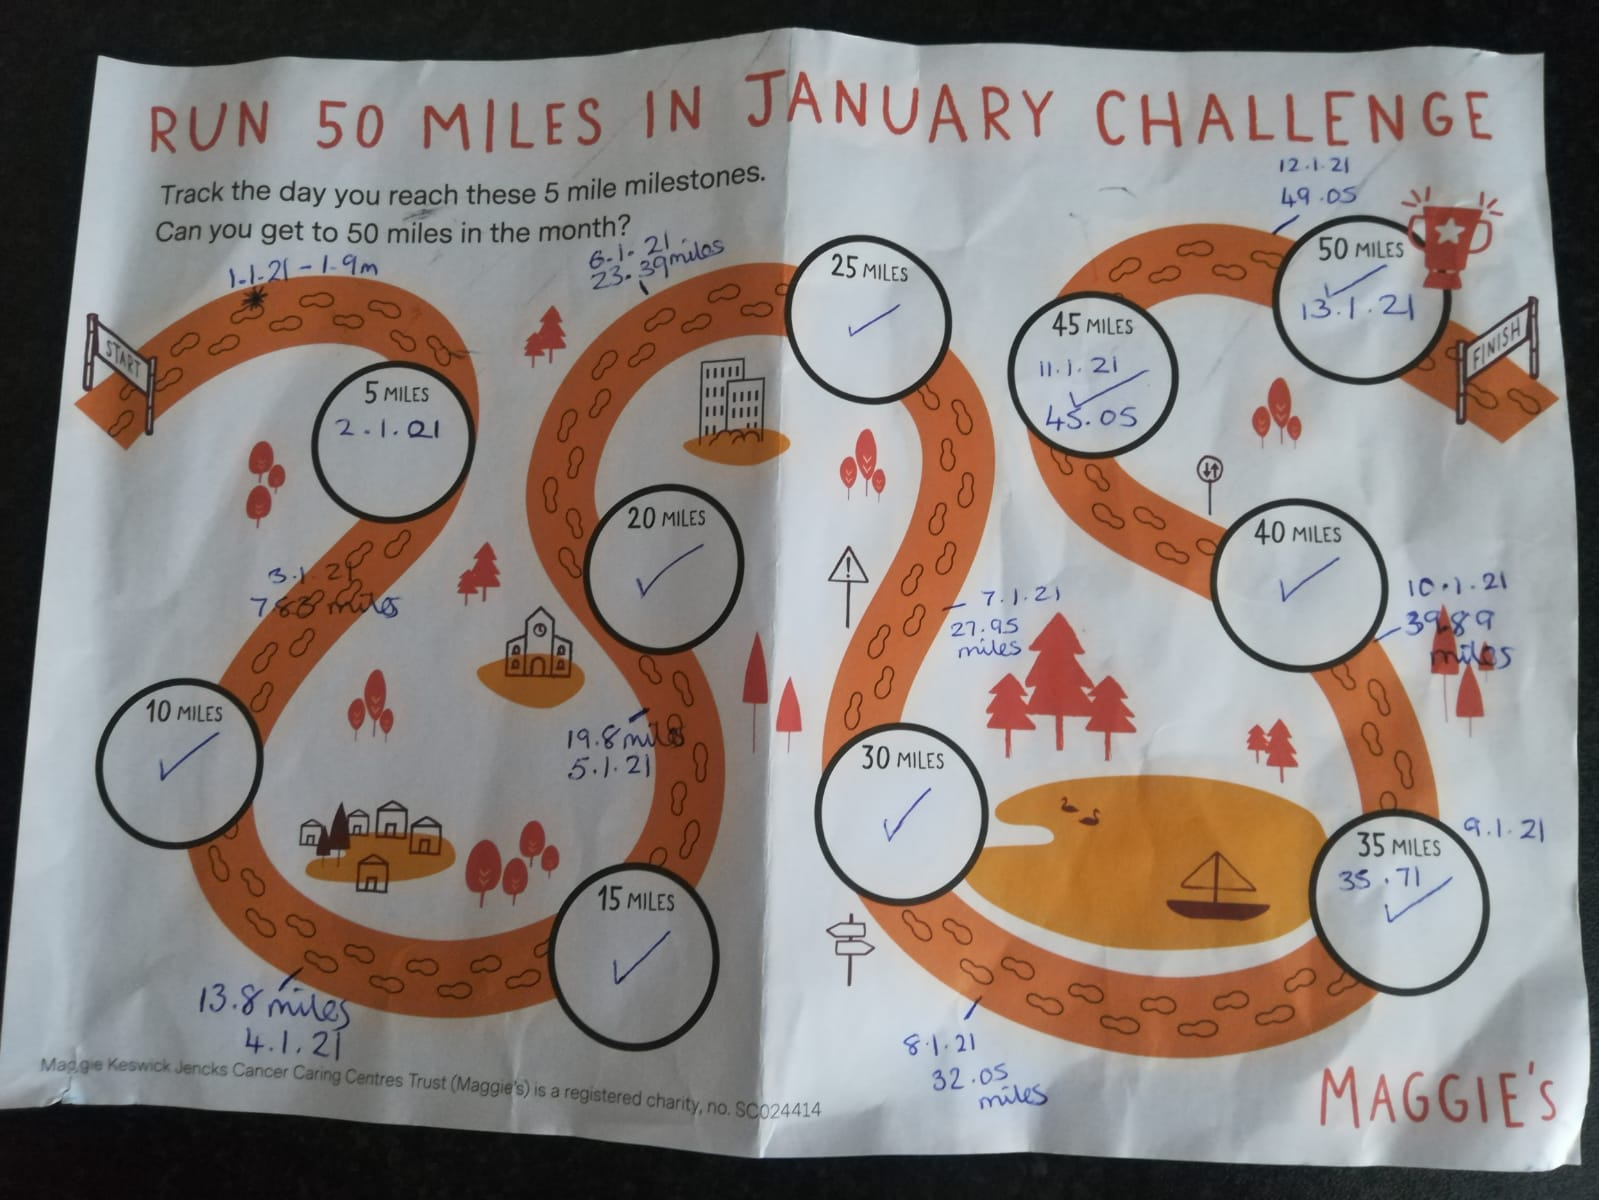 RUN 50 MILES IN JANUARY CHALLENGE
Track the day you reach these 5 mile milestones.
Can you get to 50 miles in the month?
START
1.1.21 - 1.9m
5 MILES
2.1.21
3.1.21
miles
10 MILES
13.8 miles
4.1.21
15 MILES
19.8 miles
5.1.21
20 MILES
6.1.21
23.39 miles
25 MILES
7.1.21
27.95
miles
30 MILES
8.1.21
32.05
miles
35 MILES
35.71
9.1.21
10.1.21
39.89
miles
40 MILES
45 MILES
11.1.21
45.05
12.1.21
49.05
50 MILES
13.1.21
FINISH
Maggie Keswick Jencks Cancer Caring Centres Trust (Maggie's) is a registered charity, no. SC024414
MAGGIE'S